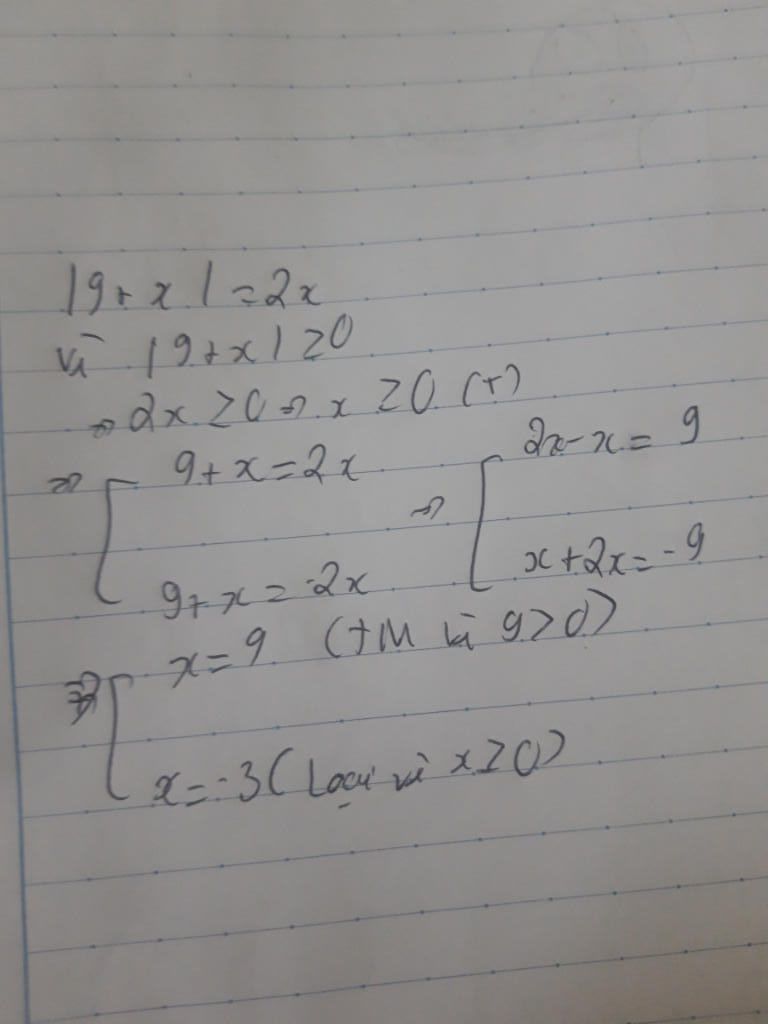 |9+x|=2x
Vì |9+x|≥0
⇒ 2x≥0 ⇒ x≥0 (+)
⇒ [ 9+x=2x ⇒ [ 2x-x=9
9+x=-2x x+2x=-9
⇒ [ x=9 (TM vì 9>0)
x=-3 (Loại vì x≥0)